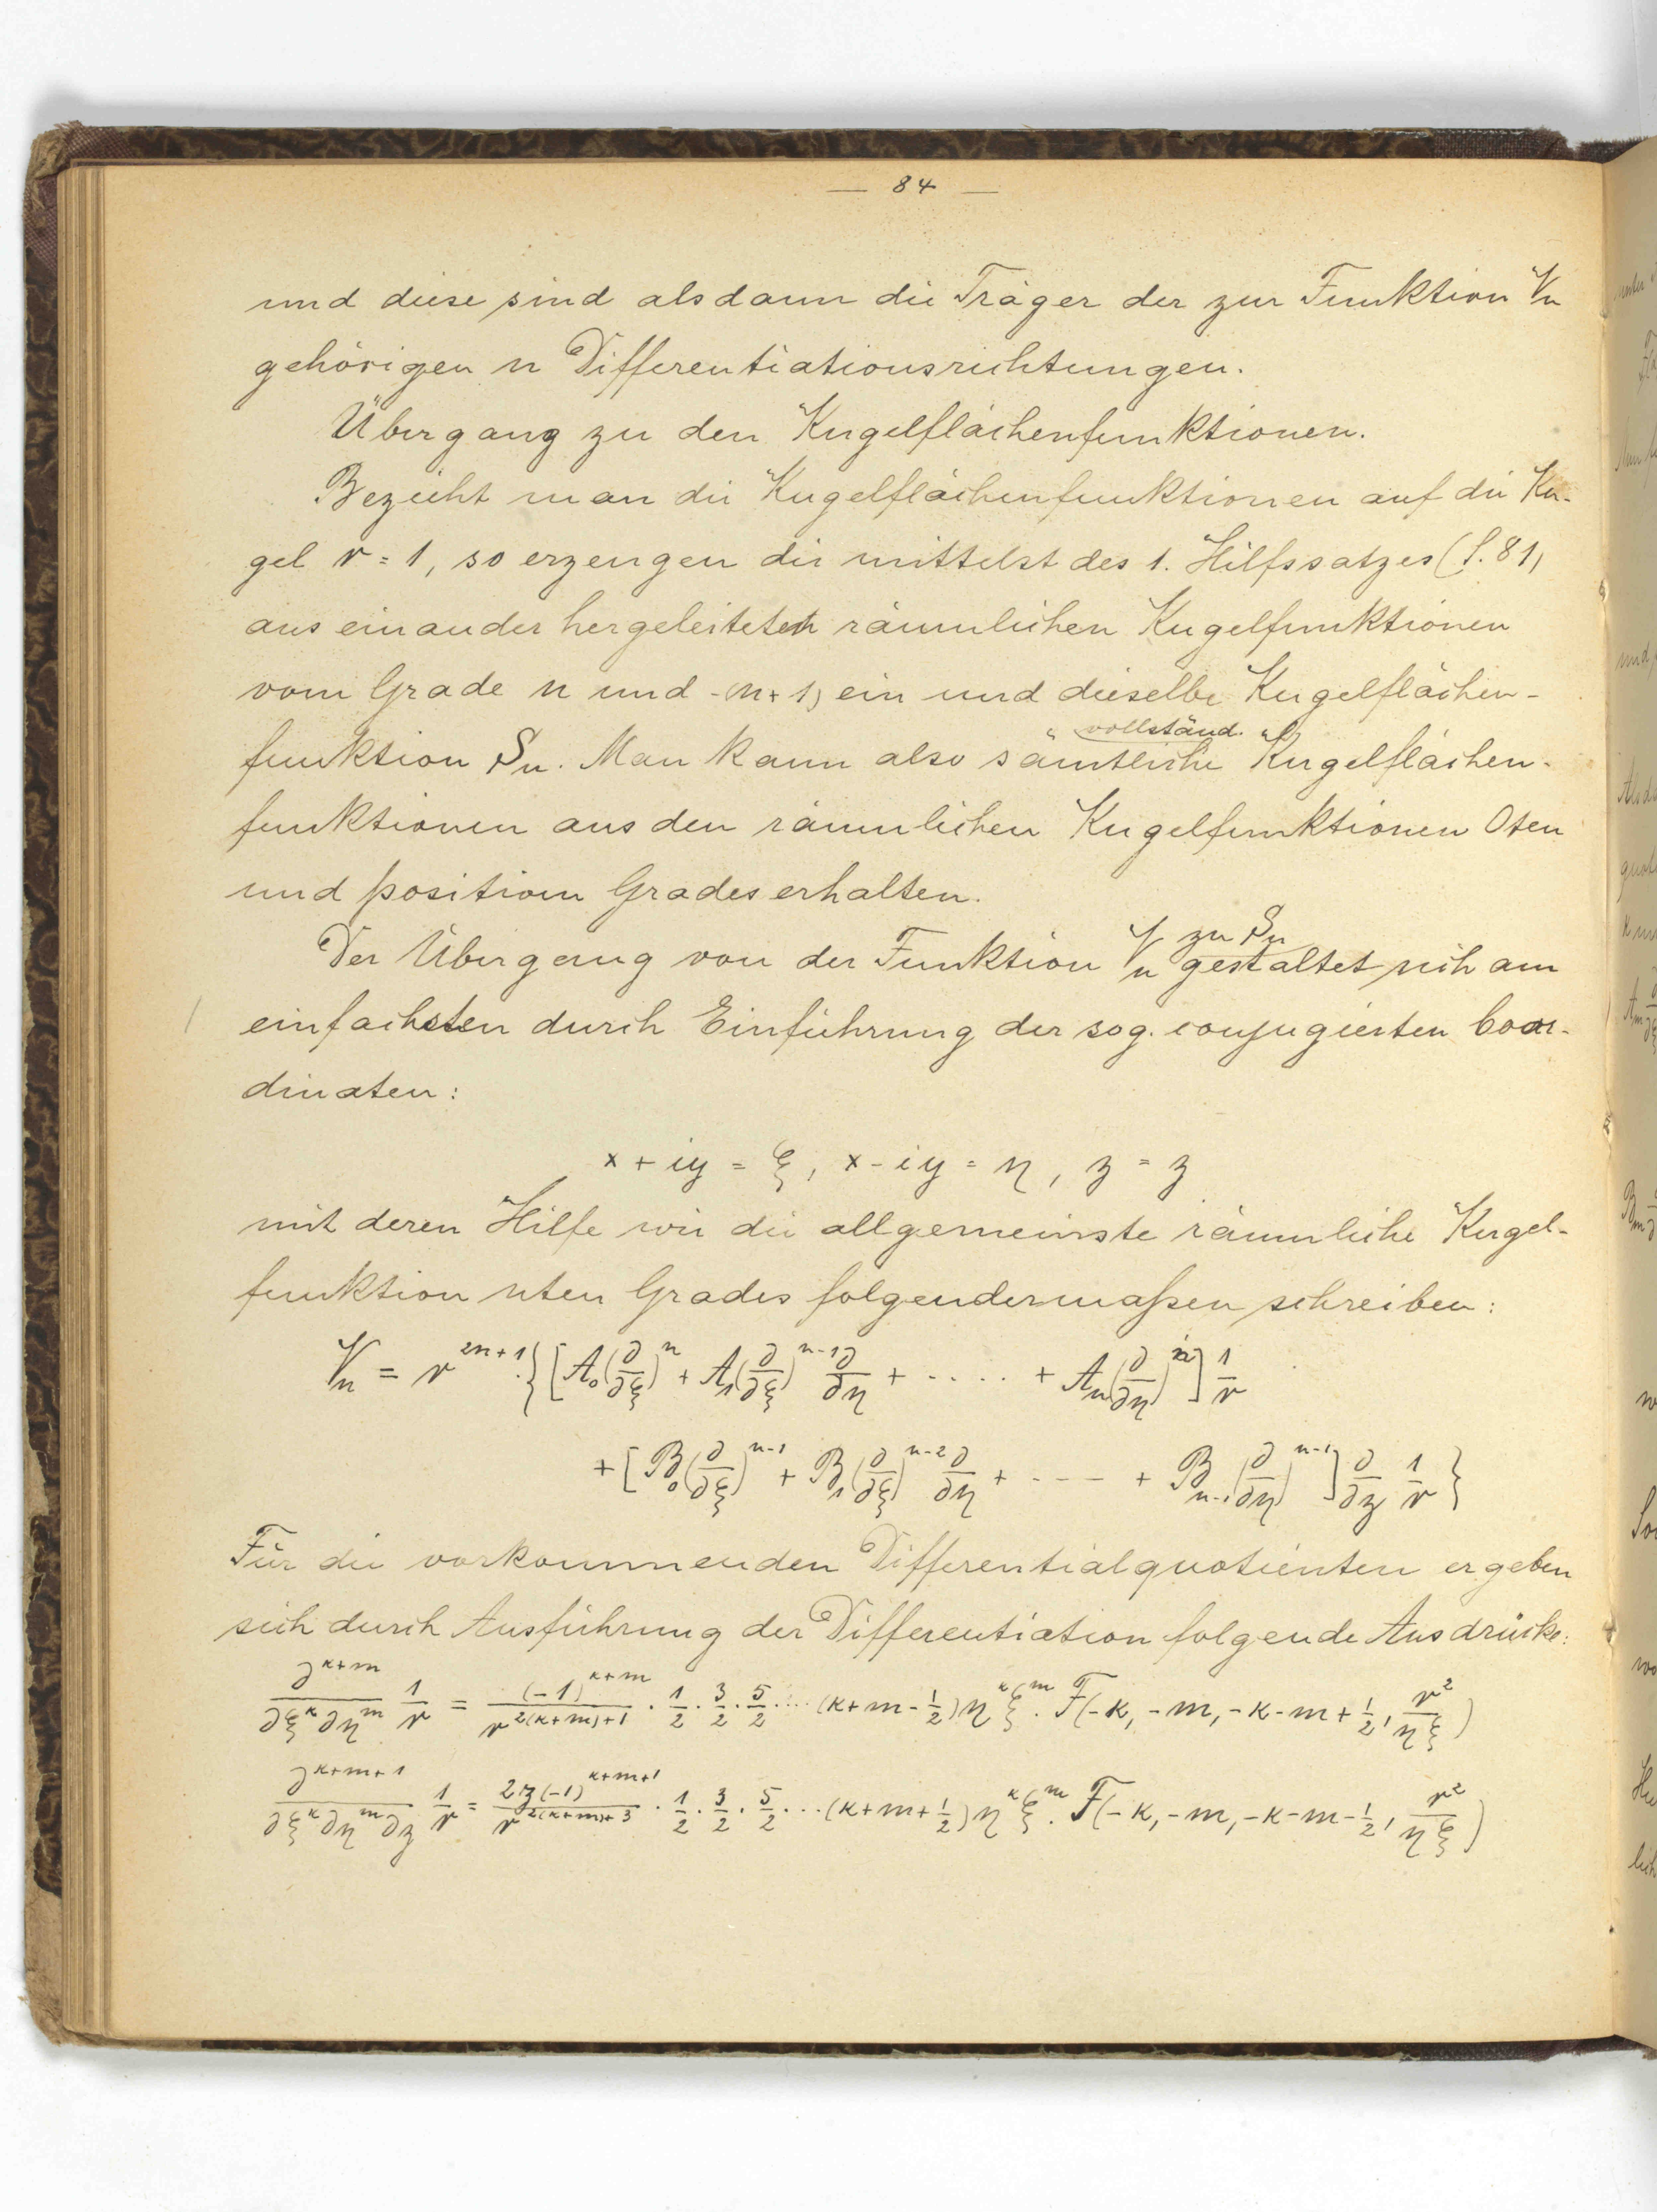 — 84 —
und diese sind alsdann die Träger der zur Funktion Vn
gehörigen n Differentiationsrichtungen.
Übergang zu den Kugelflächenfunktionen.
Bezieht man die Kugelflächenfunktionen auf die Ku-
gel r = 1, so erzeugen die mittelst des 1. Hilfssatzes (S. 81)
aus einander hergeleiteten räumlichen Kugelfunktionen
vom Grade n und -(n+1) ein und dieselbe Kugelflächen-
" vollständ. "
funktion Sn. Man kann also sämtliche Kugelflächen-
funktionen aus den räumlichen Kugelfunktionen 0ten
und positiven Grades erhalten.
zu Sn
Der Übergang von der Funktion Vn gestaltet sich am
einfachsten durch Einführung der sog. conjugierten Coor-
dinaten:
x + iy = ξ, x - iy = η, z = z
mit deren Hilfe wir die allgemeinste räumliche Kugel-
funktion nten Grades folgendermaßen schreiben:
Vn = r^{2n+1}·{[A₀(∂/∂ξ)^n + A₁(∂/∂ξ)^{n-1} ∂/∂η + ..... + An(∂/∂η)^n] 1/r
+ [B₀(∂/∂ξ)^{n-1} + B₁(∂/∂ξ)^{n-2} ∂/∂η + ---- + B_{n-1}(∂/∂η)^{n-1}] ∂/∂z 1/r }
Für die vorkommenden Differentialquotienten ergeben
sich durch Ausführung der Differentiation folgende Ausdrücke:
∂^{κ+m}/∂ξ^κ ∂η^m 1/r = (-1)^{κ+m}/r^{2(κ+m)+1} · 1/2 · 3/2 · 5/2 ···· (κ+m-1/2) η^κ ξ^m · F(-κ, -m, -κ-m+1/2, r²/ηξ)
∂^{κ+m+1}/∂ξ^κ ∂η^m ∂z 1/r = 2z(-1)^{κ+m+1}/r^{2(κ+m)+3} · 1/2 · 3/2 · 5/2 ··· (κ+m+1/2) η^κ ξ^m · F(-κ, -m, -κ-m-1/2, r²/ηξ)